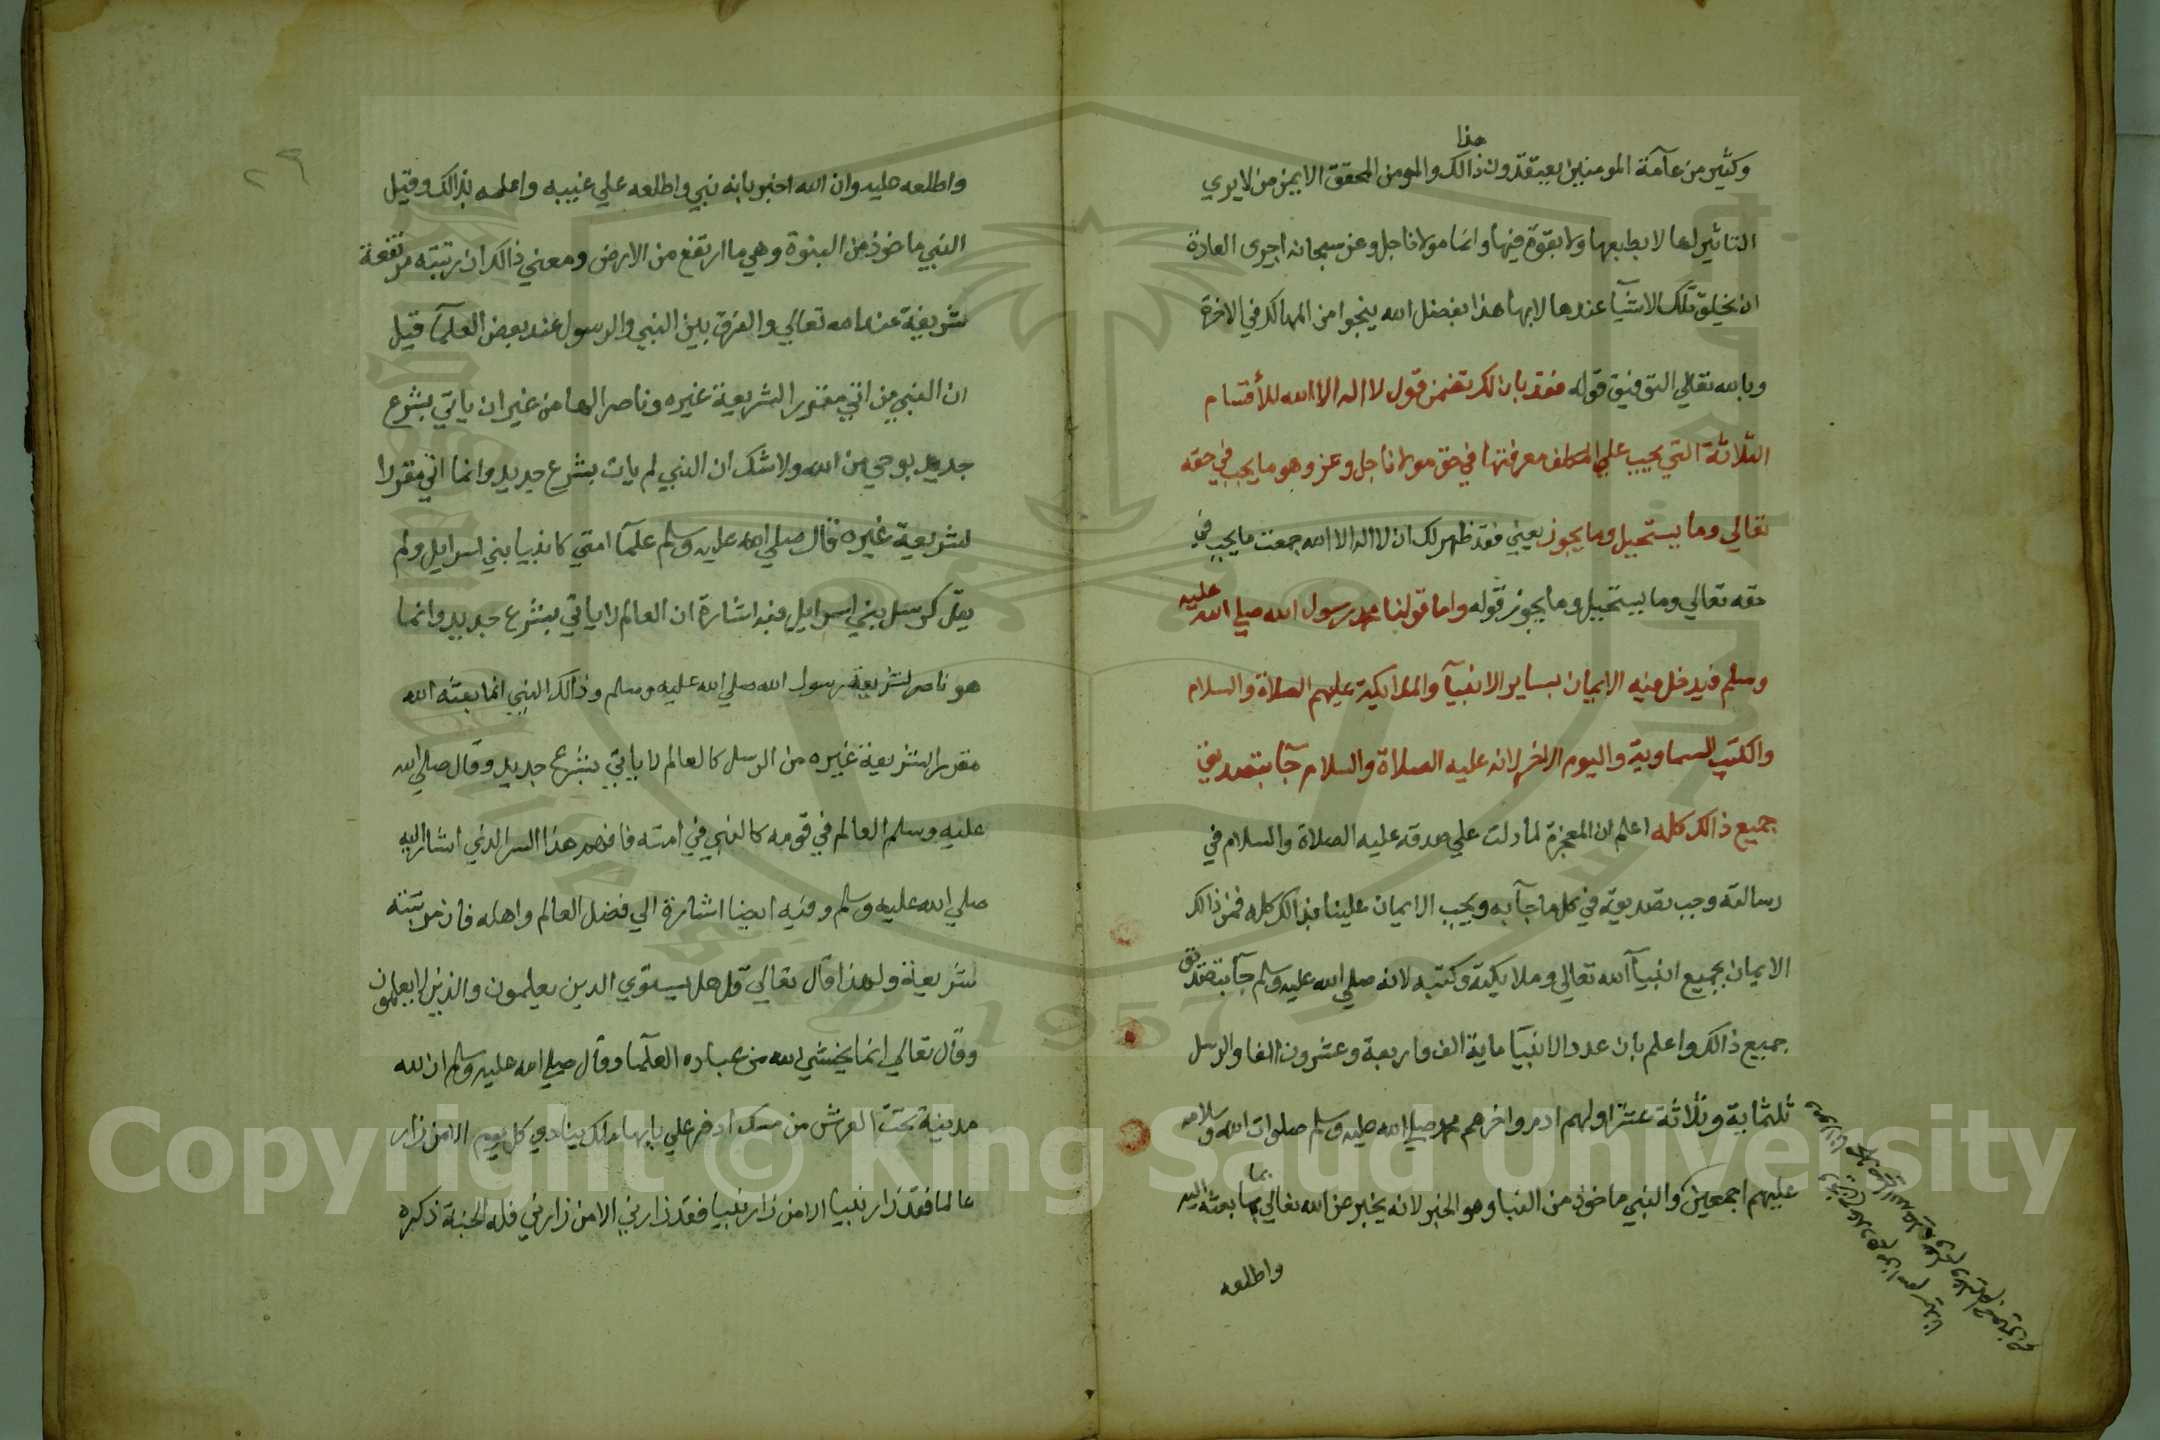 هذا
وكثير من عآمة المومنين يعتقدون ذالك والمومن المحقق الايمن من لا يري
التاثير لها لا بطبعها ولا بقوة فيها وانما مولانا جل وعز سبحانه اجرى العادة
ان يخلق تلك الاشيآ عندها لا بها هذا بفضل الله ينجوا من المهالك في الاخرة
وبالله تعالي التوفيق قوله فقد بان لك تضمن قول لا اله الا الله للأقسام
الثلاثة التي يجب علي المكلف معرفتها في حق مولانا جل وعز وهو ما يجب في حقه
تعالي وما يستحيل وما يجوز يعني فقد ظهر لك ان لا اله الا الله جمعت ما يجب في
حقه تعالي وما يستحيل وما يجوز قوله واما قولنا محمد رسول الله صلي الله عليه
وسلم فيدخل فيه الايمان بساير الانبيآ والملايكة عليهم الصلاة والسلام
والكتب السماوية واليوم الاخر لانه عليه الصلاة والسلام جآ بتصديق
جميع ذالك كله اعلم ان المعجزة لما دلت علي صدقه عليه الصلاة والسلام في
رسالته وجب تصديقه في كل ما جآ به ويجب الايمان علينا بذالك كله فمن ذالك
الايمان بجميع انبيآ الله تعالي وملايكته وكتبه لانه صلي الله عليه وسلم جآ بتصديق
جميع ذالك واعلم بان عدد الانبيآ ماية الف واربعة وعشرون الفا والرسل
ثلثماية وثلاثة عشر اولهم ادم واخرهم محمد صلي الله عليه وسلم صلوات الله وسلامه
عليهم اجمعين والنبي ماخوذ من النبا وهو الخبر لانه يخبر عن الله تعالي بما بعثه اليه
واطلعه
واطلعه عليه وان الله اخبر بانه نبي واطلعه علي غيبه واعلمه بذالك وقيل
النبي ماخوذ من النبوة وهي ما ارتفع من الارض ومعني ذالك ان رتبته مرتفعة
شريفة عند الله تعالي والفرق بين النبي والرسول عند بعض العلمآ قيل
ان النبي من اتي مقررا لشريعة غيره وناصرا لها من غير ان ياتي بشرع
جديد بوحي من الله ولا شك ان النبي لم يات بشرع جديد وانما اتي مقررا
لشريعة غيره قال صلي الله عليه وسلم علمآ امتي كانبيا بني اسرايل ولم
يقل كرسل بني اسرايل فيه اشارة ان العالم لا ياتي بشرع جديد وانما
هو ناصر لشريعة رسول الله صلي الله عليه وسلم وذالك النبي انما بعثه الله
مقررا لشريعة غيره من الرسل كالعالم لا ياتي بشرع جديد وقال صلي الله
عليه وسلم العالم في قومه كالنبي في امته فافهم هذا السر الذي اشار اليه
صلي الله عليه وسلم وفيه ايضا اشارة الي فضل العالم واهله فان مرتبته
شريفة ولهذا قال تعالي قل هل يستوي الدين يعلمون والذين لا يعلمون
وقال تعالي انما يخشي الله من عباده العلمآ وقال صلي الله عليه وسلم ان لله
مدينة تحت العرش من مسك ادفر علي بابها ملك ينادي كل يوم الا من زار
عالما فقد زار نبيا الا من زار نبيا فقد زارني الا من زارني فله الجنة ذكره
٢٩
Copyright © King Saud University
1957